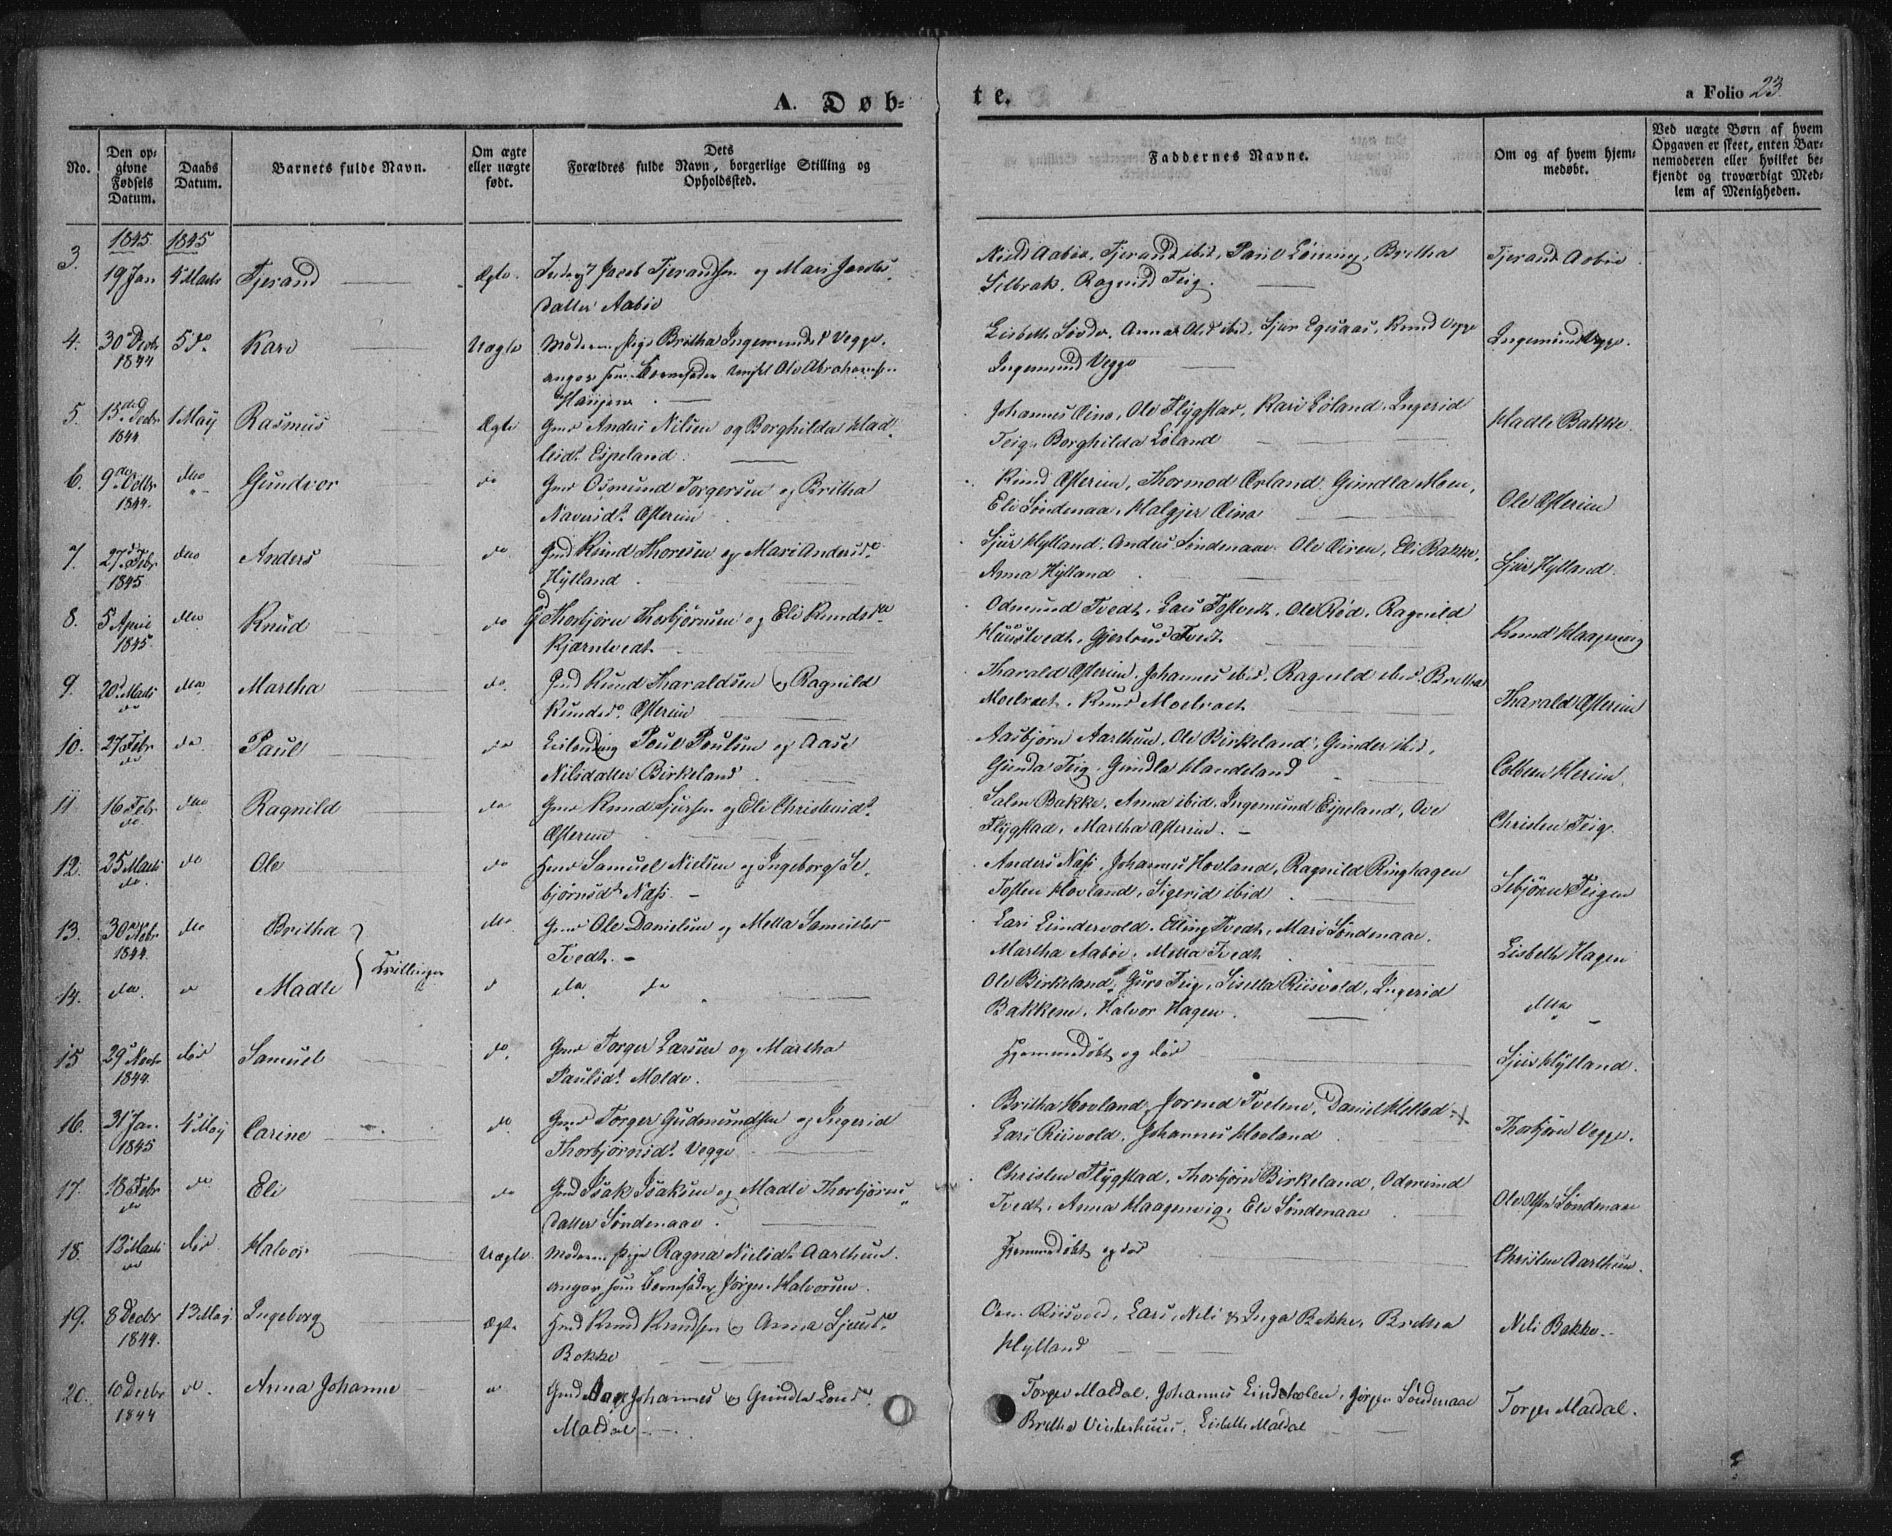 A. Døb-
te.
a Folio 23.
No.
Den op-
givne
Fødsels
Datum.
Daabs
Datum.
Barnets fulde Navn.
Om ægte
eller uægte
født.
Dets
Forældres fulde Navn, borgerlige Stilling og
Opholdssted.
Faddernes Navne.
Om og af hvem hjem-
medøbt.
Ved uægte Børn af hvem
Opgaven er skeet, enten Bar-
nemoderen eller hvilket be-
kjendt og troværdigt Med-
lem af Menigheden.
1845 1845
3. 19 Jan 4 Marts Tjerand Ægte Jacob Tjerandsen og Mari Jacobs
datter Aabøe
Aabøe, Tjerand ibid, Britha
Selbrak, Ragnild Teig.
Tjerand Aabøe
4. 30 Decbr 5 do Kari Uægte Moderen Pige Britha Ingemundsd Vegge.
1844
angav som Barnefader Ole Abrahamsen
Lisbeth Anna ibid, Sjur Egesaas, Knud Vegge
Ingemund Vegge
Ingemund Vegge.
5. 15 Decbr 1 May Rasmus Ægte Gmd Anders Nilsen og Borghilda Mad-
1844
leisdt Espeland.
Johannes Eino, Ole Flygstad, Kari Løland, Ingerid
Teig, Borghilda Løland
Madli Bakke.
6. 9 Octbr ditto Gundvor do Gmd Osmund Torgersen og Britha
1844.
Østerim
Knud Østerim, Thormod Ørland, Gundla Moen,
Eli Søndenaa, Halgjer Eino
Ole Østerim
7. 27 Febr ditto Anders do Gmd Knud Thoresen og Mari Andersd
1845
Hylland
Sjur Hylland, Anders Søndenaae, Ole Eiren, Eli Bakke,
Anna Hylland
Sjur Hylland.
8. 5 April ditto Knud do Thorbjørn Thorbjørnsen og Eli Knudsd
1845.
Kjærntvedt
Odmund Tvedt, Lars Fostvedt, Ole Rød, Ragnild
Huustvedt, Gjertrud Tvedt.
Knud Haagenvig
9. 20 Marts ditto Martha do Gmd Knud Tharaldsen og Ragnild
do
Knudsd. Østerim
Tharald Østerim, Johannes ibid. Ragnild ibid. Britha
Moelraet, Knud Moelraet
Tharald Østerim
10. 27 Febr do Paul do Leilending Poul Poulsen og Aase
do
Nilsdatter Birkeland
Aasbjørn Aarthun, Ole Birkeland, Gunder ibid,
Gunda Teig, Gundla Handeland
11. 16 Febr ditto Ragnild do Gmd Knud Sjursen og Eli Christensdt
do
Østerim
Salen Bakke, Anna ibid, Ingemund Espeland, Ove
Flygstad, Martha Østerim.
Christen Teig.
12. 25 Marts do Ole do Hmd Samuel Nielsen og Ingeborg Se-
do
bjørnsdt Næss.
Anders Næss, Johannes Hovland, Ragnild Ringhagen
Tosten Hovland, Sigerid ibid
Sebjørn Teigen
13. 30 Novbr ditto Britha do Gmd Ole Danielsen og Metta Samuelsd
1844.
Tvedt.
Lars Lindervold, Elling Tvedt, Mari Søndenaae,
Martha Aabøe, Metta Tvedt
Lisbeth Hagen
14. do do Madli Tvillinger do do do
Ole Birkeland, Guro Teig, Sisella Riisvold, Ingerid
Bakkene, Halvor Hagen.
ditto
15 29 Novbr død Samuel do Gmd Torger Larsen og Martha
1844.
Paulsdt Molde.
Hjemmedøbt og død
Sjur Hylland.
16. 31 Jan 4 May Carine do Gmd Torger Gudmundsen og Ingerid
1845
Thorbjørnsdt Vegge
Britha Hovland, Tveten, Daniel
Lars Riisvold, Johannes Hovland
Thorbjørn Vegge.
17. 18 Febr do Eli do Gmd Isak Isaksen og Madli Thorbjørns
do
datter Søndenaae.
Christen Flygstad, Thorbjørn Birkeland, Odmund
Tvedt, Anna Haagenvig, Eli Søndenaae
Ole Olsen Søndenaae
18. 13 Marts død Halvor Uægte Moderen Pige Ragna Nielsdt Aarthun.
do
angav som Barnefader Jørgen Halvorsen
Hjemmedøbt og død
Christen Aarthun.
19. 8 Decbr 13 May Ingeborg Ægte Hmd Knud Knudsen og Anna Sjursd
1844.
Bakke
Riisvold, Lars, Nils & Inga Bakke, Britha
Hylland
Nils Bakke.
20. 10 Decbr do Anna Johanne do Gmd Aage Johannes og Gundla
1844
Maldal
Torger Maldal, Johannes Lindeholen, Jørgen Søndenaae
Britha Vinterhuus, Lisbeth Maldal
Torger Maldal.